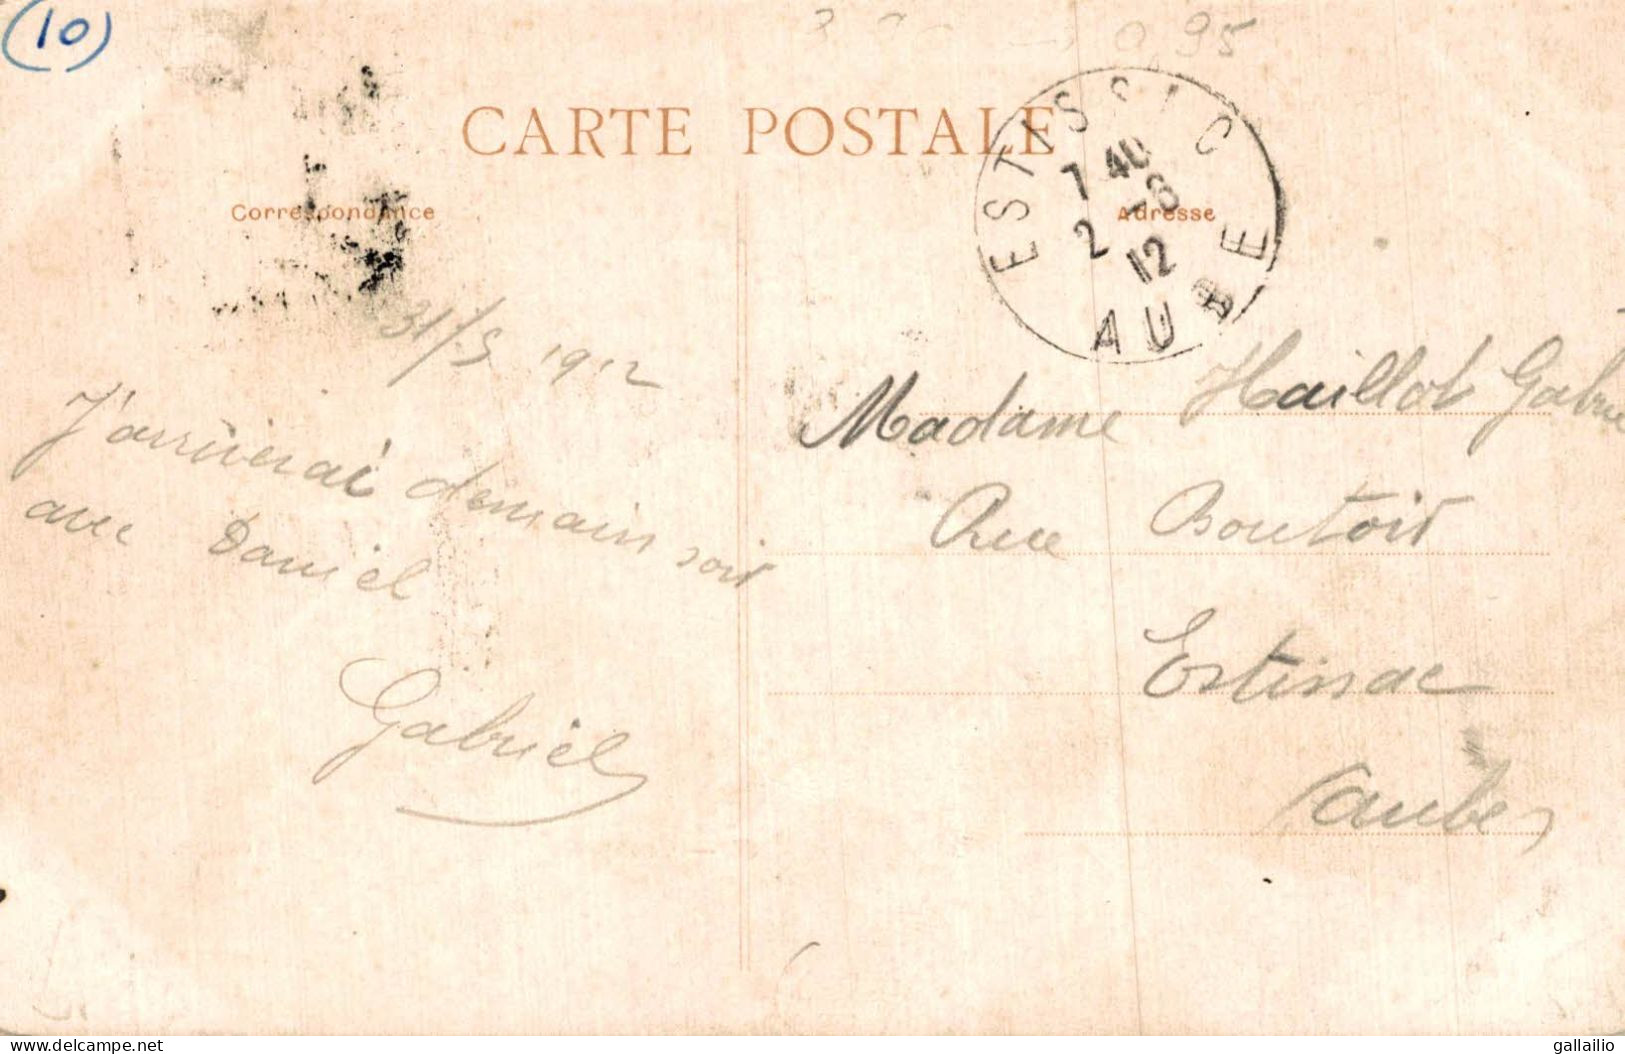 (10)
0,95
CARTE POSTALE
Correspondance
Adresse
ESTISSAC
7 40
2 -6
12
AUBE
31/5 1912
J'arriverai demain soir
avec Daniel
Gabriel
Madame Haillot Gabriel
Rue Boutoir
Estissac
Aube
gallailio